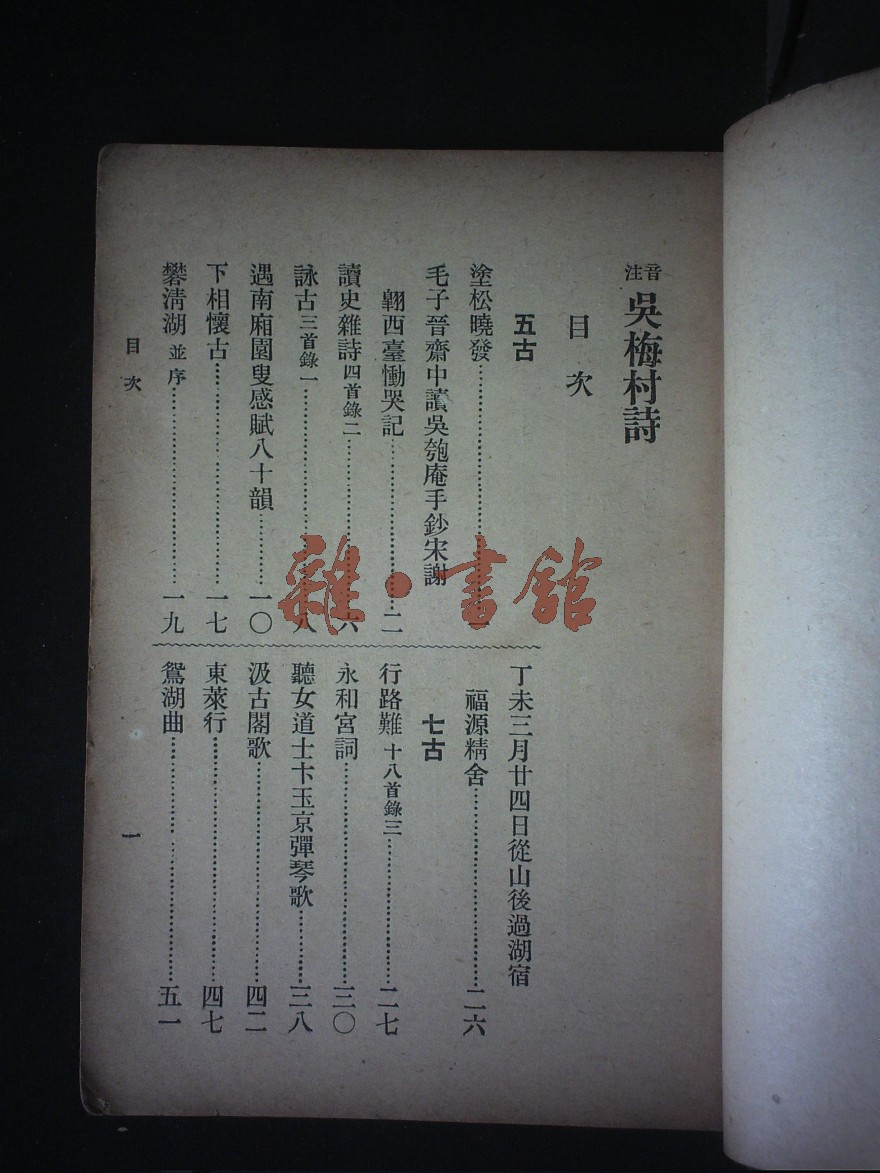 音注 吳梅村詩
目次
五古
塗松曉發……一
毛子晉齋中讀吳匏庵手鈔宋謝
翱西臺慟哭記……二
讀史雜詩四首錄二……六
詠古三首錄一……八
遇南廂園叟感賦八十韻……一〇
下相懷古……一七
礬清湖並序……一九
丁未三月廿四日從山後過湖宿
福源精舍……二六
七古
行路難十八首錄三……二七
永和宮詞……三〇
聽女道士卞玉京彈琴歌……三八
汲古閣歌……四二
東萊行……四七
鴛湖曲……五一
目次
一
雜·書館